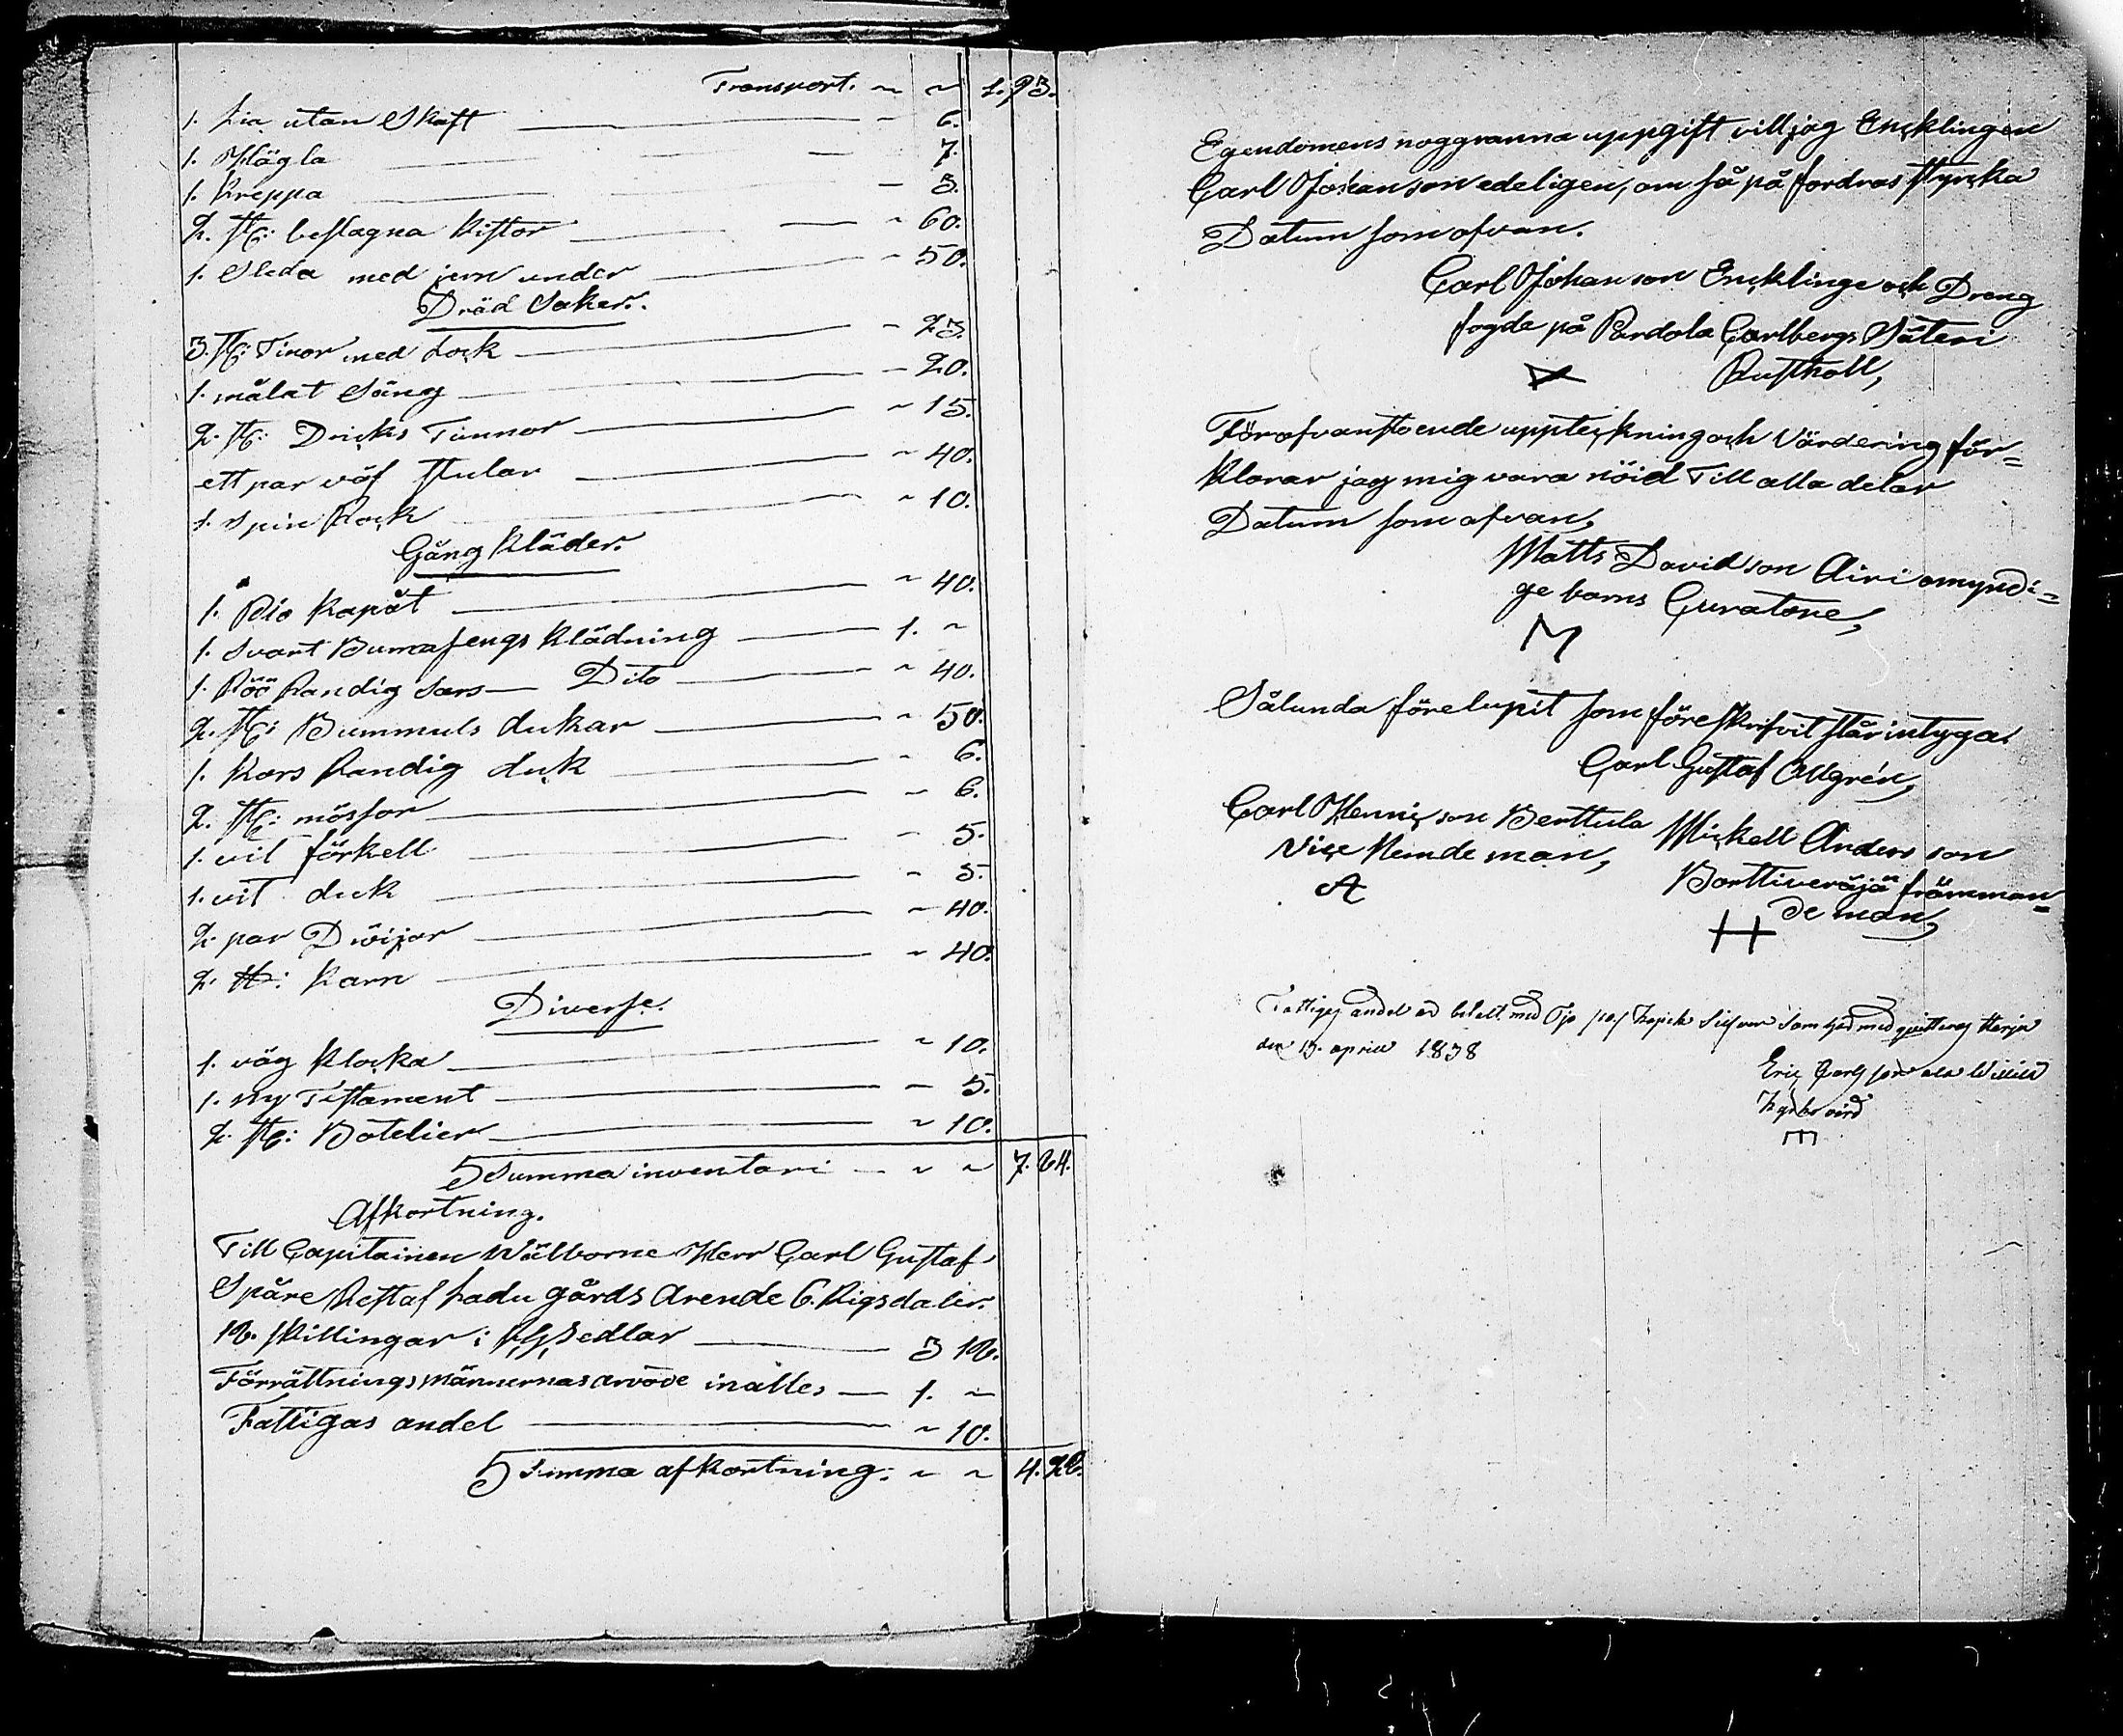 Transport. ~ ~ 1. 93.
1. Lia utan Skaft — ~ 6.
1. Hägla — 7.
1. Kreppa — 3.
2. st: beslagna Kistor — ~ 60.
1. Sleda med jern under — ~ 50.
Träd Saker.
3. st: Tinor med Lock — ~ 23.
1. målat Säng — ~ 20.
2. st: Dricks Tunnor — ~ 15.
ett par väf stular — ~ 40.
1. Spin Rock — ~ 10.
Gång Kläder.
1. Blå Kapåt — ~ 40.
1. Svart Bumasengs Klädning — 1. ~
1. Röö Randig Sars — Dito — ~ 40.
2. st: Bummuls dukar — ~ 50.
1. Kors Randig duk — ~ 6.
2. st: mössor — ~ 6.
1. vit förkell — ~ 5.
1. vit duk — ~ 5.
2. par Tröijor — ~ 40.
2. st: Karn — ~ 40.
Diverse.
1. väg Klocka — ~ 10.
1. ny Testament — ~ 5.
2. st: Botelier — ~ 10.
Summa inventari — ~ ~ 7. 64.
Afkortning.
Till Capitainen Wälborne Herr Carl Gustaf
Spåre Restaf Ladu gårds Arende 6. Rigsdaler.
16. skillingar i sedlar — 3 16.
Förrättningsmännernas arvode inalles — 1. ~
Fattigas andel — ~ 10.
Summa afkortning: ~ ~ 4. 26.
Egendomens noggranna uppgift vill jag Encklingen
Carl Johanson edeligen, om så på fordras styrcka
Datum som ofvan.
Carl Johanson Encklinge och Dreng
fogde på Pardola Carlbergs Säteri
Rusthåll,
Förofvanstoende uppteckning och Värdering för=
klarar jag mig vara nöid Till alla delar
Datum som ofvan,
Matts Davidson Airi omyndi=
ge barns Curatore,
M
Sålunda förelupit som föreskrifvit står intyga.
Carl Gustaf Allgrén,
Carl Hennicson Berttula Mickell Anderson
Vice Nemdeman, Borttiveräjä främman=
A de man,
H
Fattiges andel ad betalt med Tjo /10/ Kopek Silfver som med quitteras
den 13. aprill 1838
Eric Carlsson